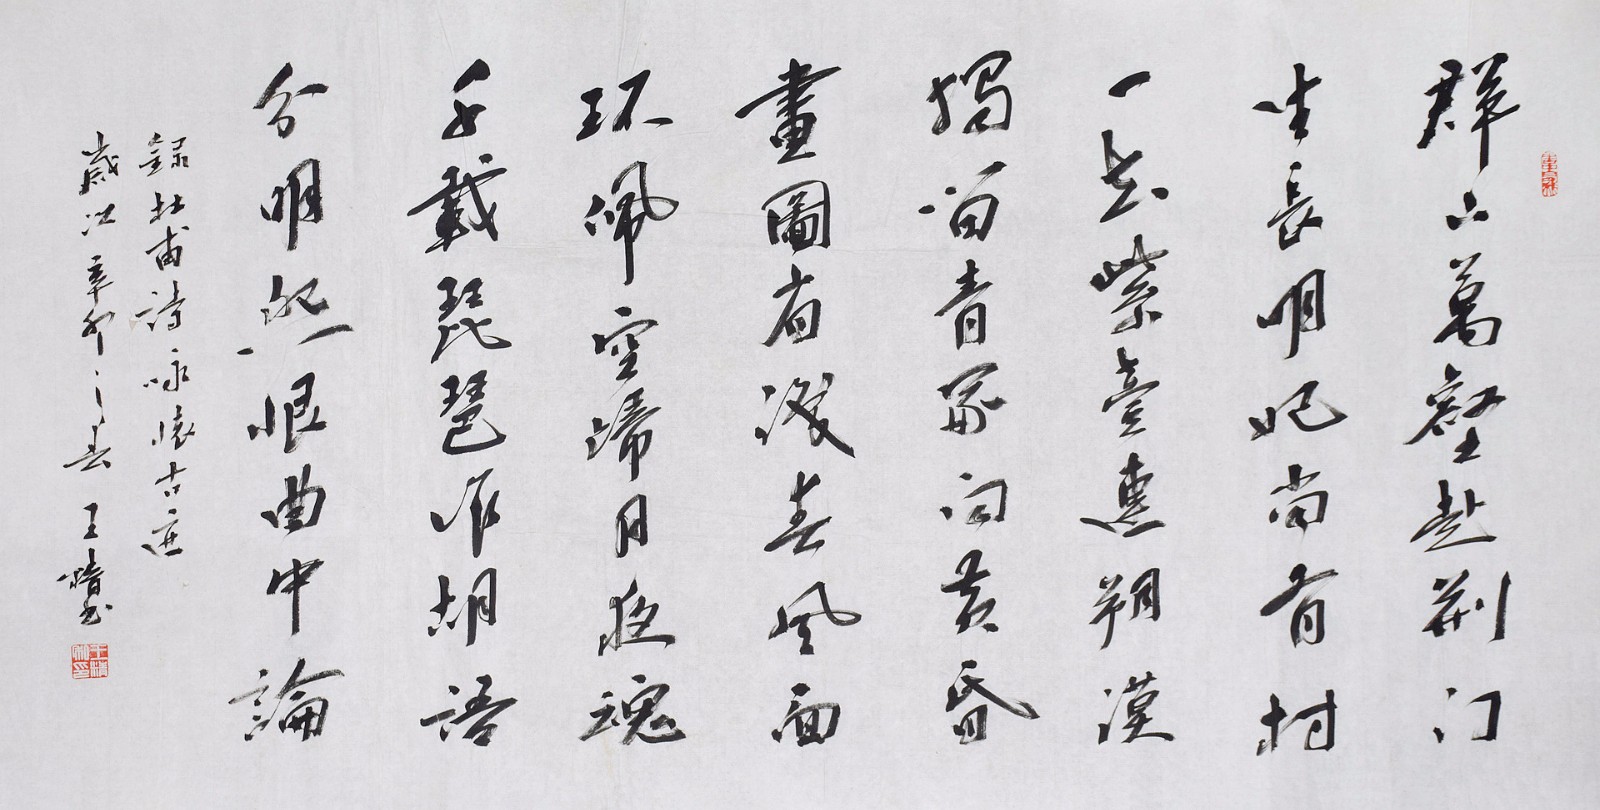 群山萬壑赴荆门
生長明妃尚有村
一去紫臺連朔漠
獨留青冢向黄昏
畫圖省識春風面
环佩空歸月夜魂
千載琵琶作胡語
分明怨恨曲中論
録杜甫詩咏懷古迹
歲次辛卯之春 王書